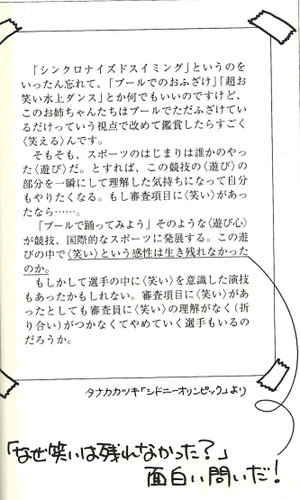 「シンクロナイズドスイミング」というのを
いったん忘れて、「プールでのおふざけ」「超お
笑い水上ダンス」とか何でもいいのですけど、
このお姉ちゃんたちはプールでただふざけてい
るだけっていう視点で改めて鑑賞したらすごく
〈笑える〉んです。
そもそも、スポーツのはじまりは誰かのやっ
た〈遊び〉だ。とすれば、この競技の〈遊び〉の
部分を一瞬にして理解した気持ちになって自分
もやりたくなる。もし審査項目に〈笑い〉があっ
たなら……。
「プールで踊ってみよう」そのような〈遊び心〉
が競技、国際的なスポーツに発展する。この遊
びの中で〈笑い〉という感性は生き残れなかった
のか。
もしかして選手の中に〈笑い〉を意識した演技
もあったかもしれない。審査項目に〈笑い〉があ
ったとしても審査員に〈笑い〉の理解がなく(折
り合い)がつかなくてやめていく選手もいるの
だろうか。
タナカカツキ「シドニーオリンピック」より
「なぜ笑いは残れなかった?」
面白い問いだ!